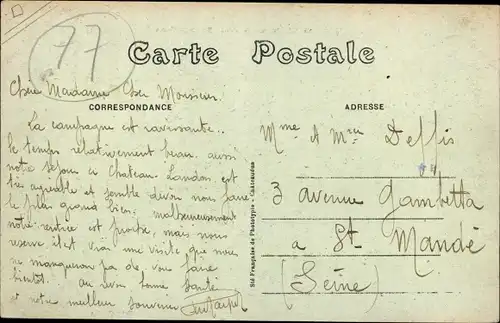 77
Carte Postale
Chère Madame Cher Monsieur.
CORRESPONDANCE
La campagne est ravissante..
le temps relativement beau aussi
notre séjour à Chateau Landon est
très agréable et semble devoir nous faire
le plus grand bien. malheureusement
notre rentrée est proche, mais nous
réserve il est vrai une visite que nous
ne manquerons pas de vous faire
bientôt. au revoir bonne santé
et notre meilleur souvenir
Sté Française de Phototypie - Châteaudun
ADRESSE
Mme et Mr Delfis
3 avenue Gambetta
a St Mandé
(Seine)